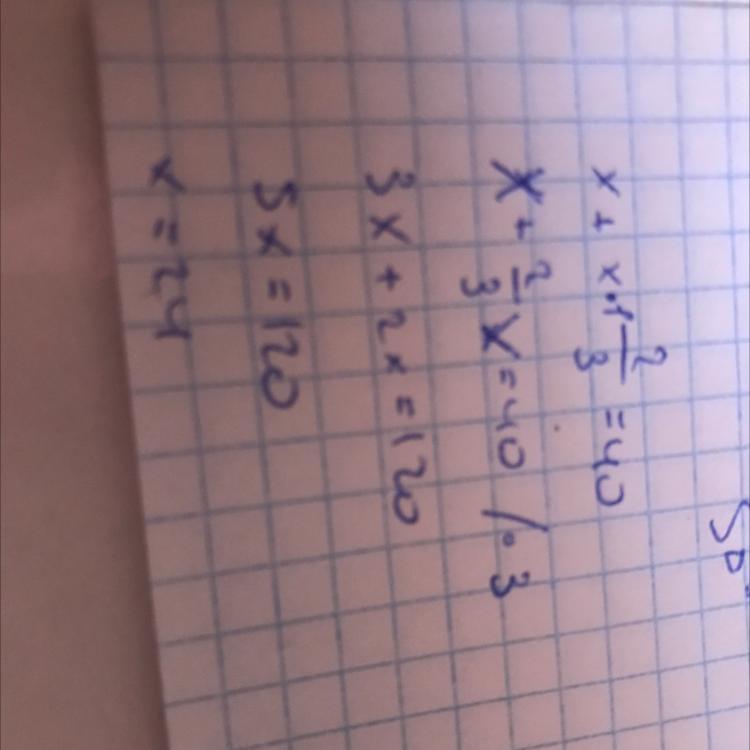 x + x · \frac{2}{3} = 40
x + \frac{2}{3} x = 40 / · 3
3x + 2x = 120
5x = 120
x = 24